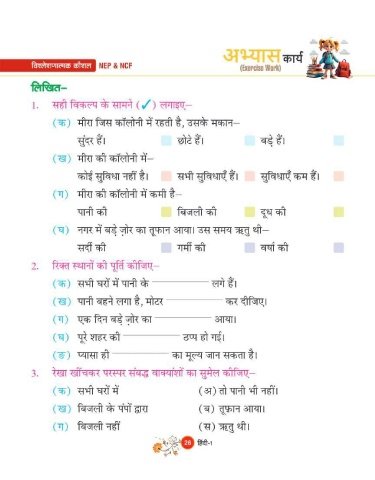 विश्लेशणात्मक कौशल NEP & NCF
अभ्यास कार्य
(Exercise Work)
लिखित–
1. सही विकल्प के सामने (✓) लगाइए–
(क) मीरा जिस कॉलोनी में रहती है, उसके मकान–
सुंदर हैं। छोटे हैं। बड़े हैं।
(ख) मीरा की कॉलोनी में–
कोई सुविधा नहीं है। सभी सुविधाएँ हैं। सुविधाएँ कम हैं।
(ग) मीरा की कॉलोनी में कमी है–
पानी की बिजली की दूध की
(घ) नगर में बड़े ज़ोर का तूफान आया। उस समय ऋतु थी–
सर्दी की गर्मी की वर्षा की
2. रिक्त स्थानों की पूर्ति कीजिए–
(क) सभी घरों में पानी के ____________ लगे हैं।
(ख) पानी बहने लगा है, मोटर ____________ कर दीजिए।
(ग) एक दिन बड़े ज़ोर का ____________ आया।
(घ) पूरे शहर की ____________ ठप्प हो गई।
(ङ) प्यासा ही ____________ का मूल्य जान सकता है।
3. रेखा खींचकर परस्पर संबद्ध वाक्यांशों का सुमेल कीजिए–
(क) सभी घरों में (अ) तो पानी भी नहीं।
(ख) बिजली के पंपों द्वारा (ब) तूफ़ान आया।
(ग) बिजली नहीं (स) ऋतु थी।
26 हिंदी-1